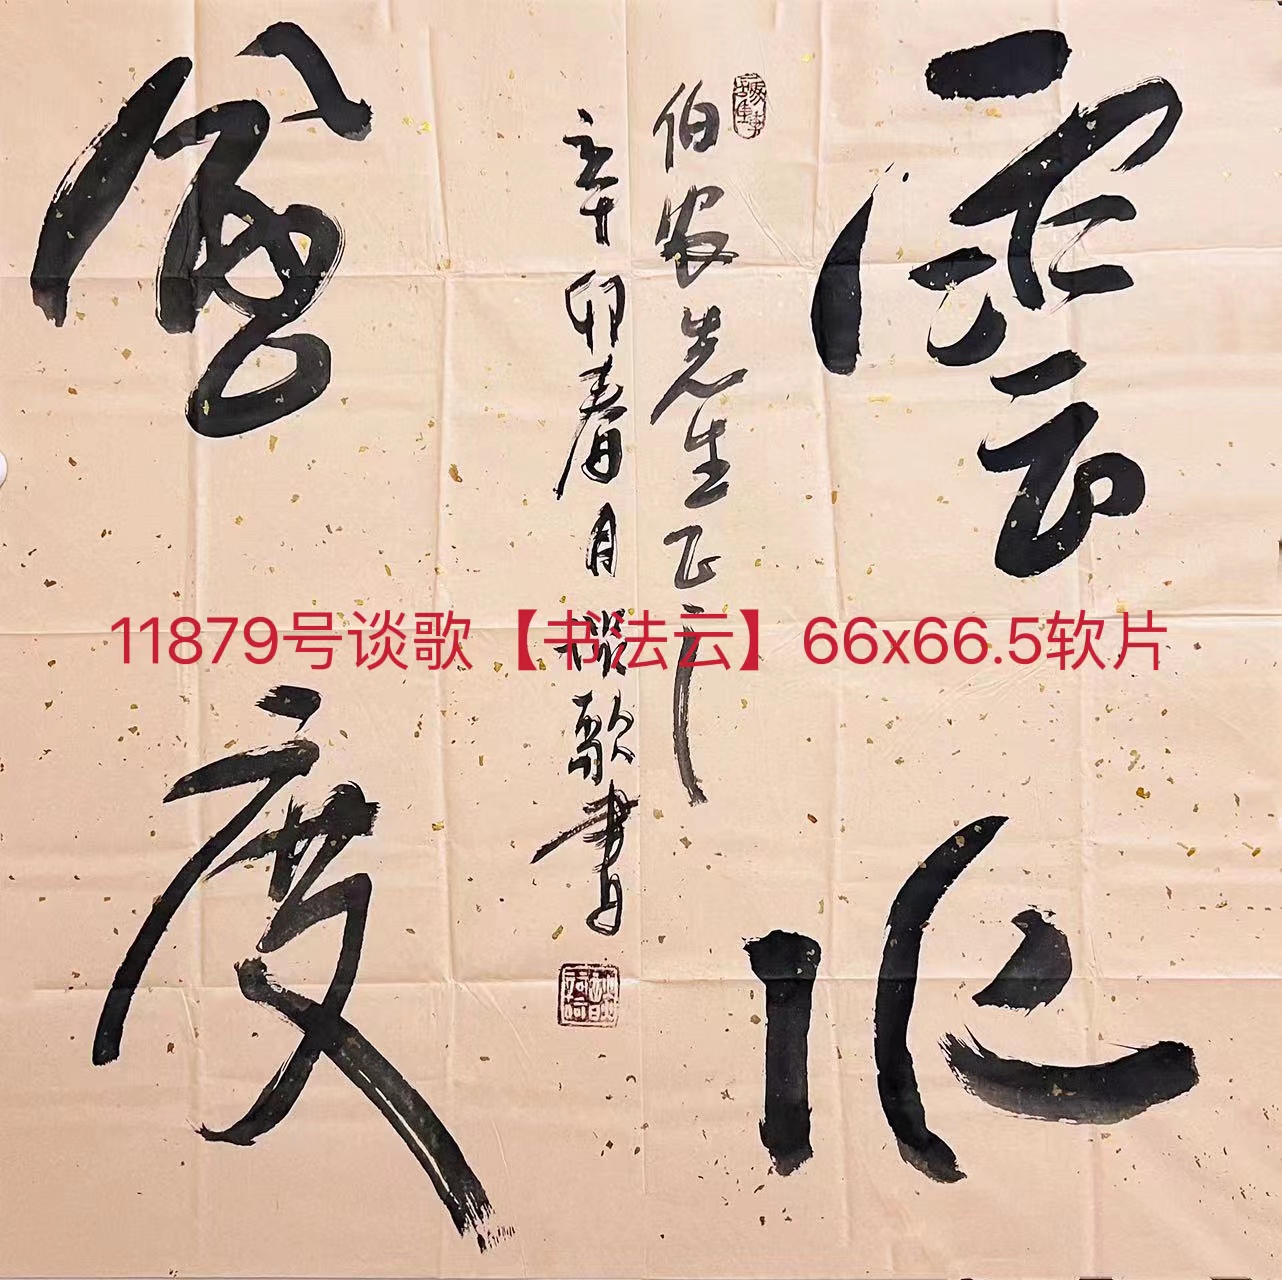 雲水
伯农先生正之
辛卯春月談歌書
風度
11879号谈歌【书法云】66x66.5软片